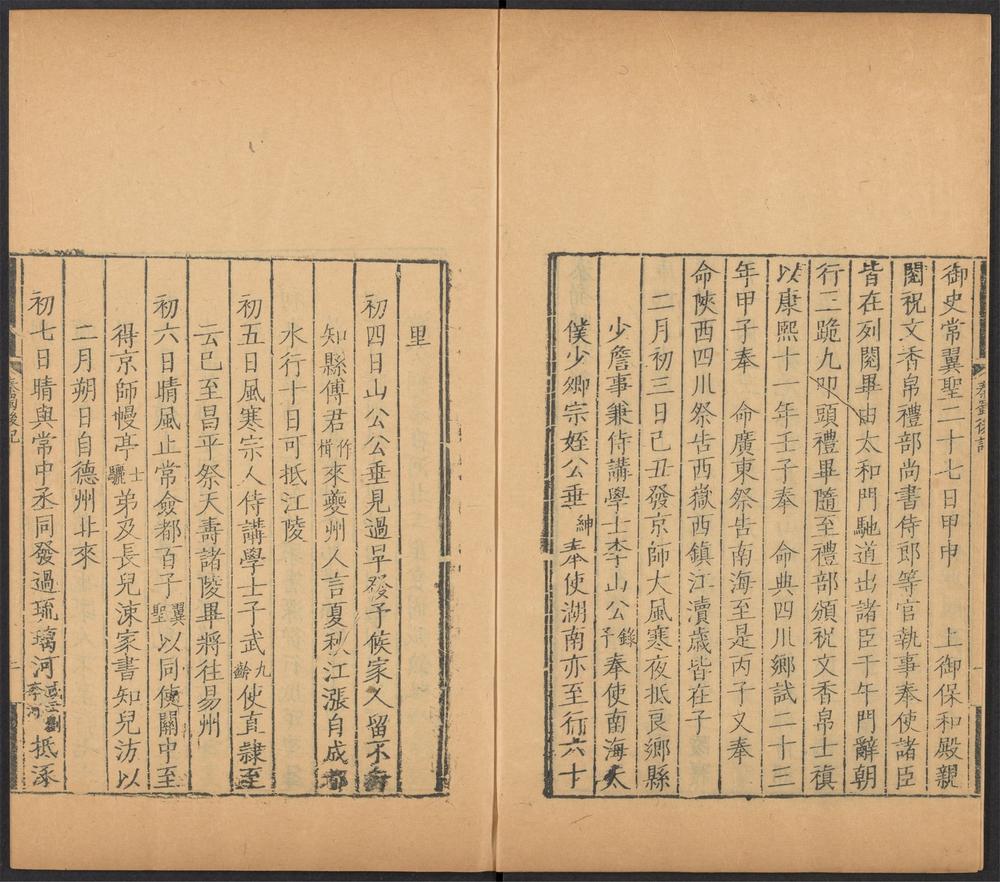 御史常翼聖二十七日甲申　上御保和殿親
閱祝文香帛禮部尚書侍郎等官執事奉使諸臣
皆在列閱畢由太和門馳道出諸臣于午門辭朝
行三跪九叩頭禮畢隨至禮部頒祝文香帛士禛
以康熙十一年壬子奉　命典四川鄉試二十三
年甲子奉　命廣東祭告南海至是丙子又奉
命陝西四川祭告西嶽西鎮江瀆歲皆在子
二月初三日己丑發京師大風寒夜抵良鄉縣
少詹事兼侍講學士李山公錄予奉使南海太
僕少卿宗姪公垂紳奉使湖南亦至行六十
里
初四日山公公垂見過早發予候家人留不
知縣傅君作楫來夔州人言夏秋江漲自成都
水行十日可抵江陵
初五日風寒宗人侍講學士子武九齡使直隸至
云已至昌平祭天壽諸陵畢將往易州
初六日晴風止常僉都百子翼聖以同使關中至
得京師幔亭士驪弟及長兒涷家書知兒汸以
二月朔日自德州北來
初七日晴與常中丞同發過琉璃河抵涿
秦蜀後記